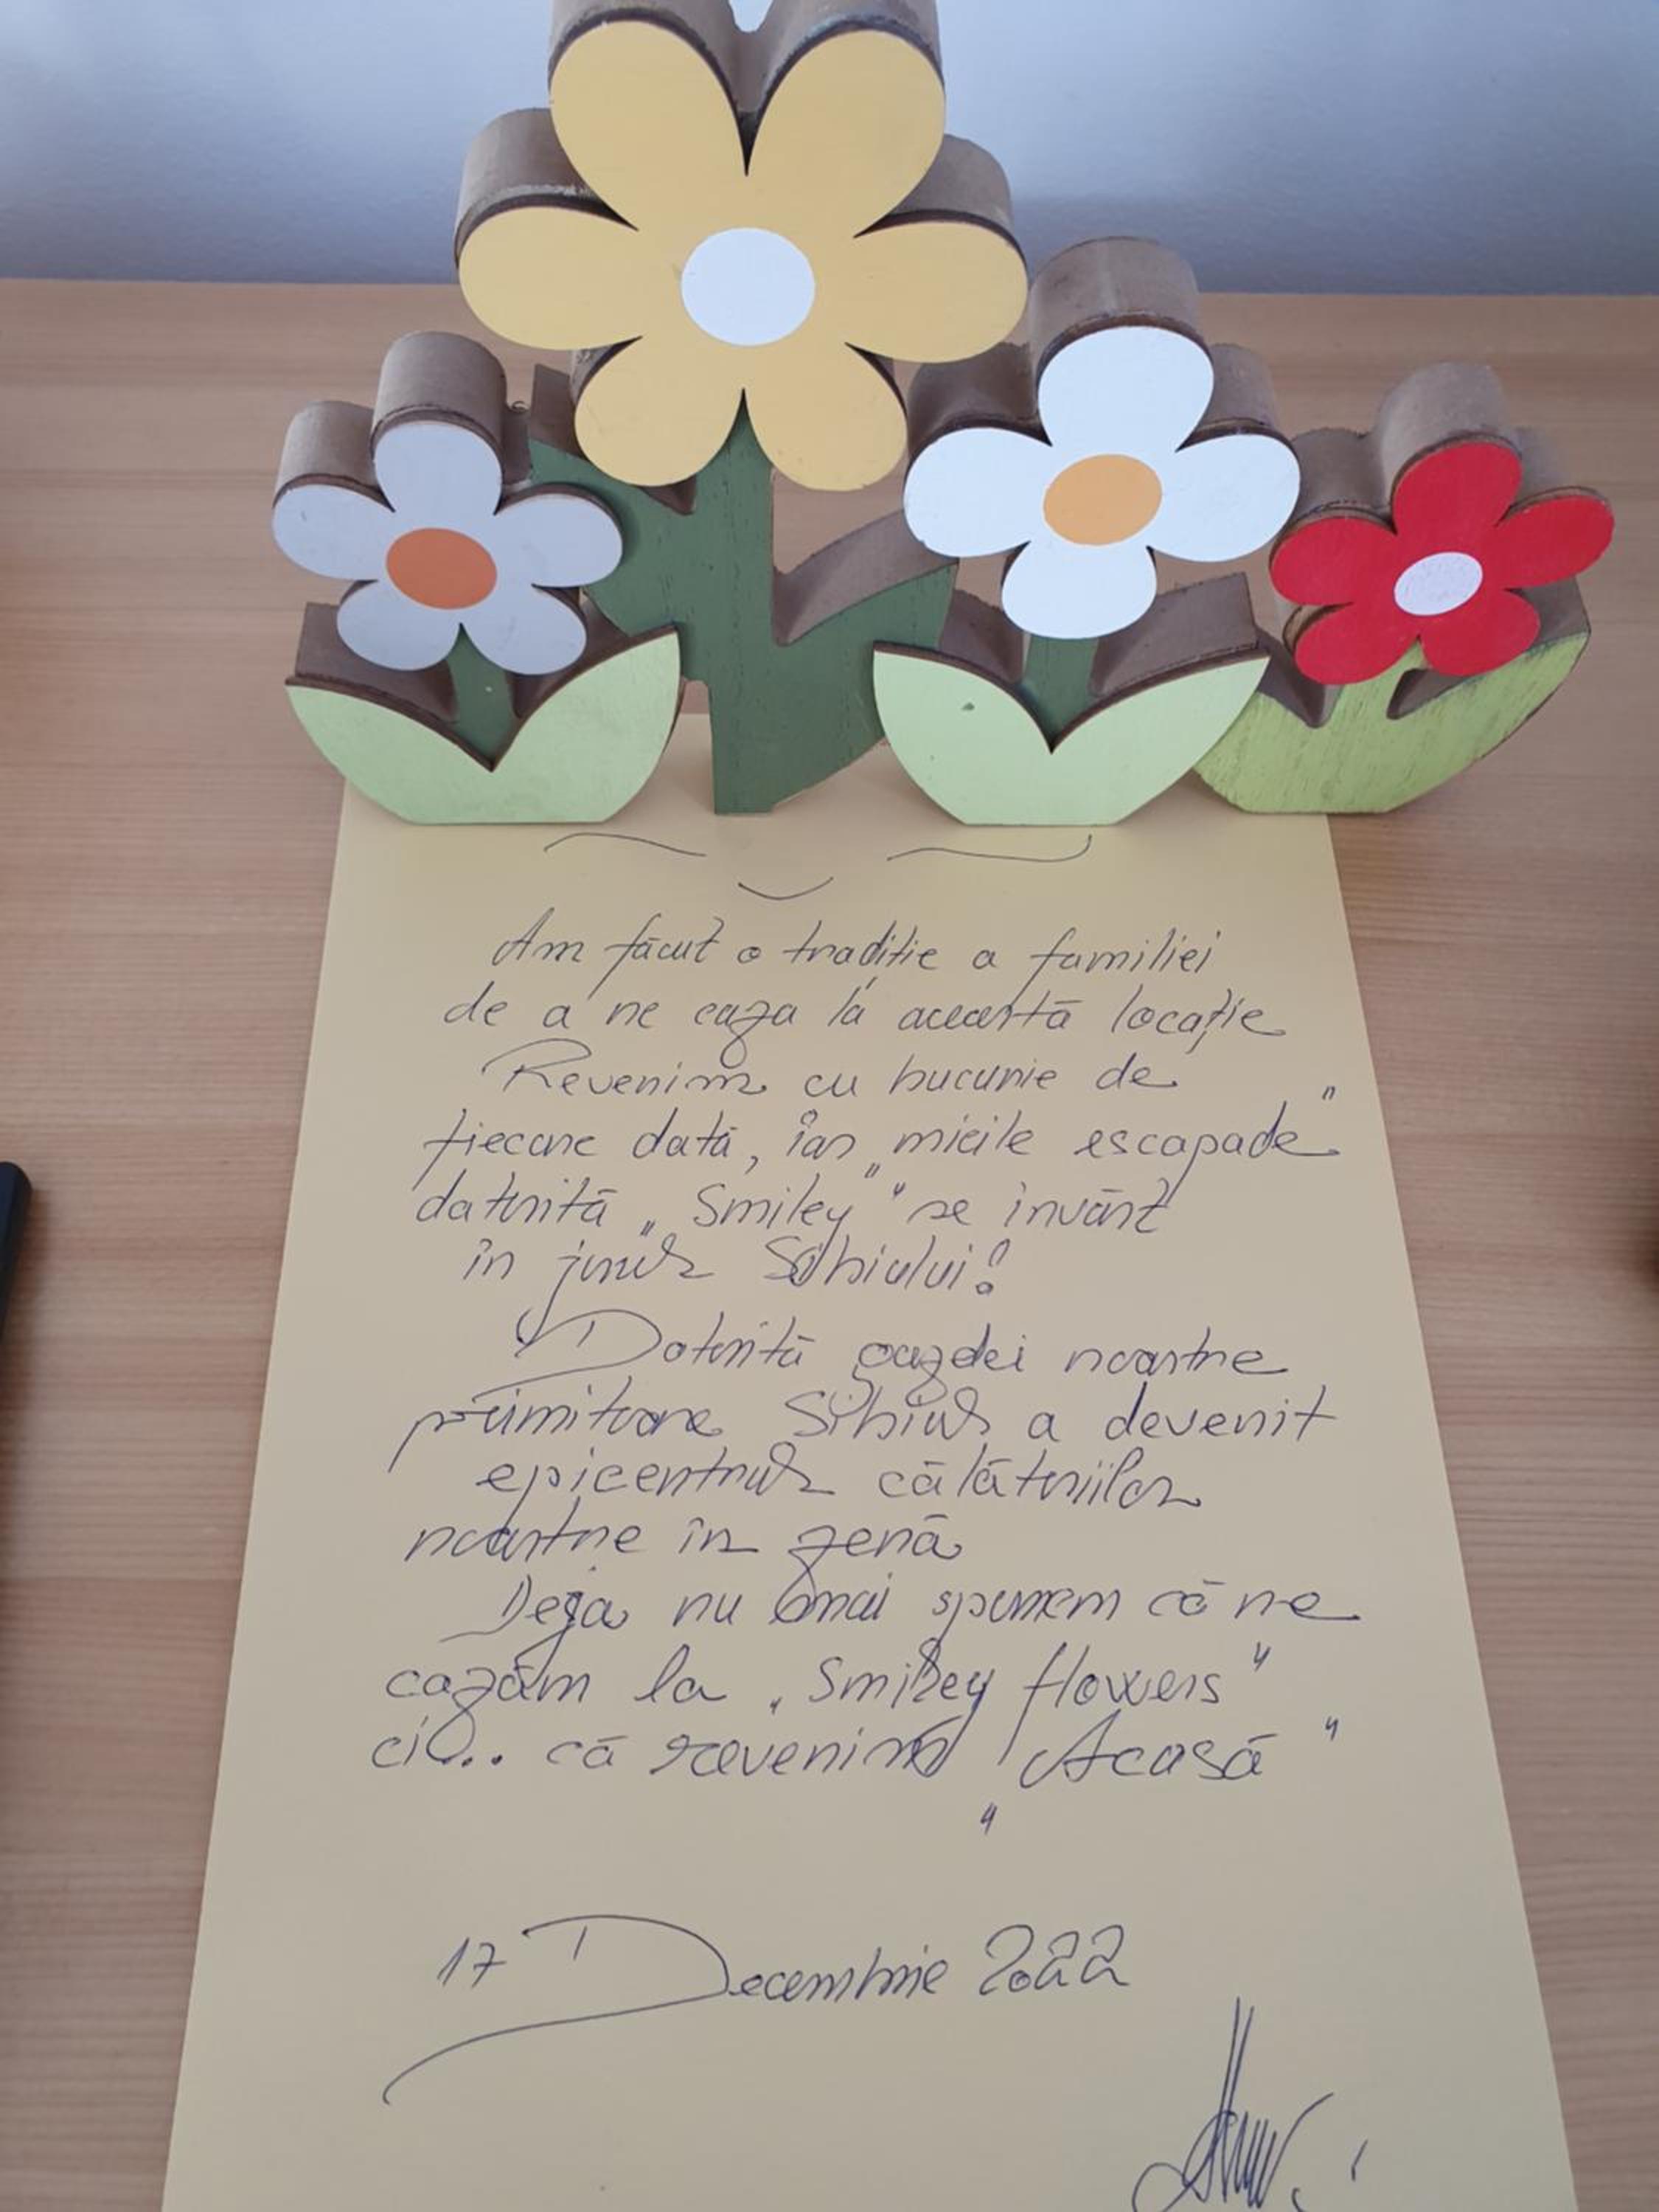 Am făcut o tradiție a familiei
de a ne caza la această locație
Revenim cu bucurie de
fiecare dată, iar „micile escapade”
datorită „Smiley” se învârt
în jurul Sibiului!
Datorită gazdei noastre
primitoare Sibiul a devenit
epicentrul călătoriilor
noastre în zonă
Deja nu mai spunem că ne
cazăm la „Smiley flowers”
ci... că revenim „Acasă”
17 Decembrie 2022